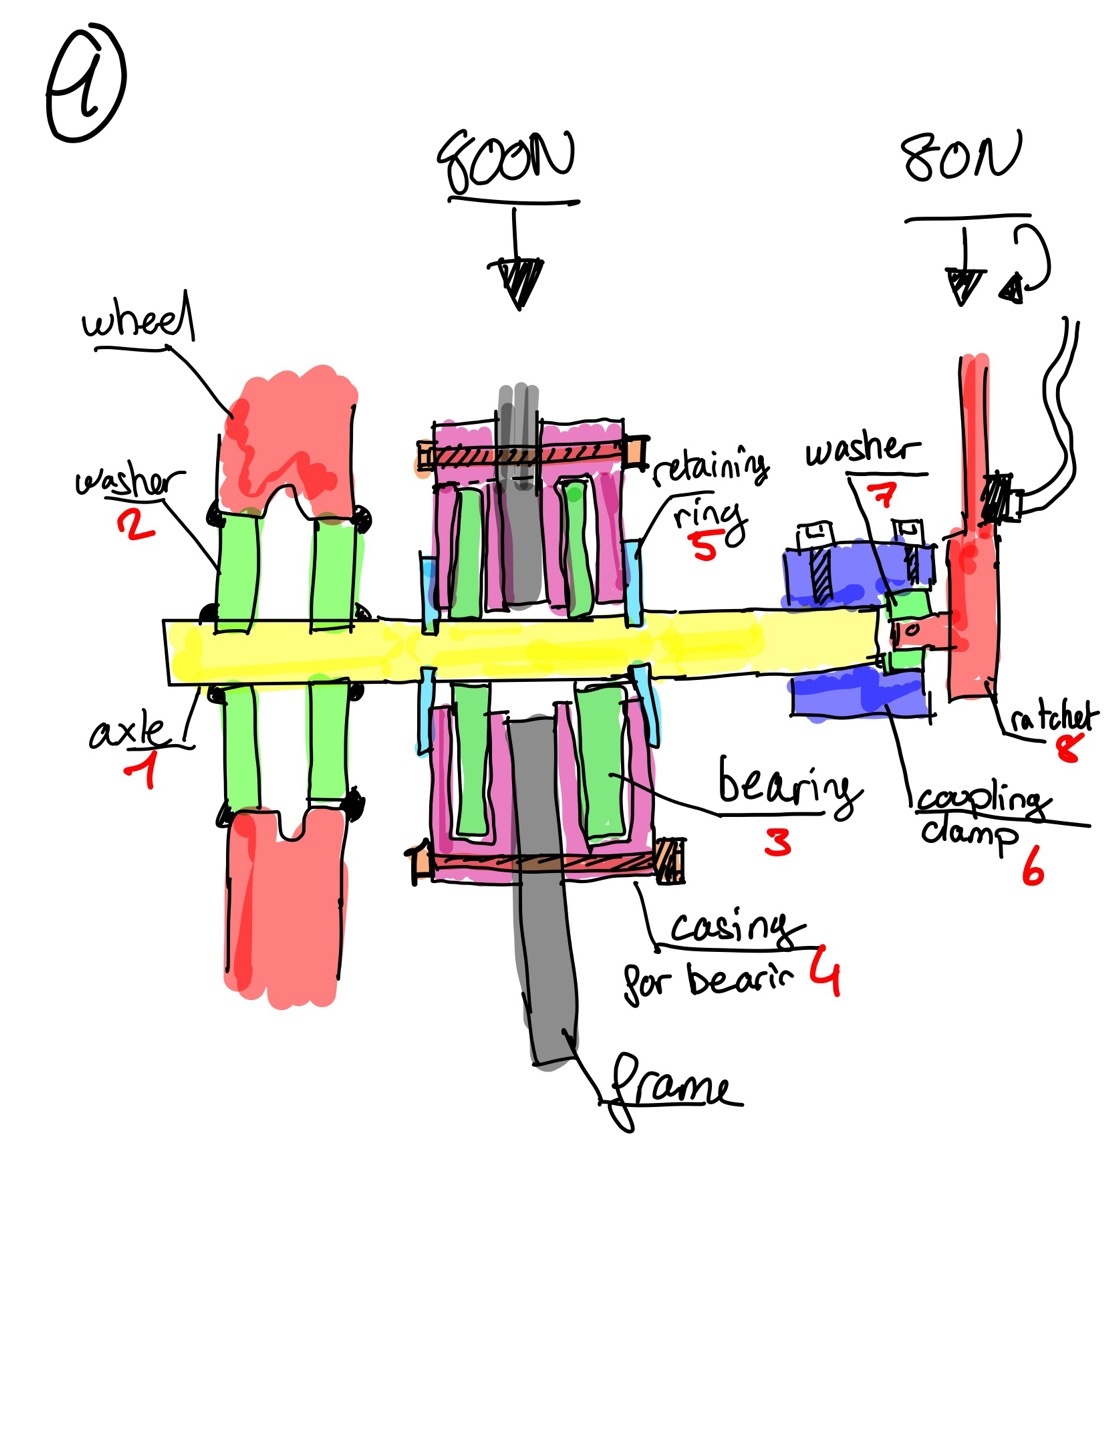 1
800N
80N
wheel
washer
2
retaining
ring
5
washer
7
axle
1
bearing
3
ratchet
8
coupling
clamp
6
casing
for bearin 4
frame